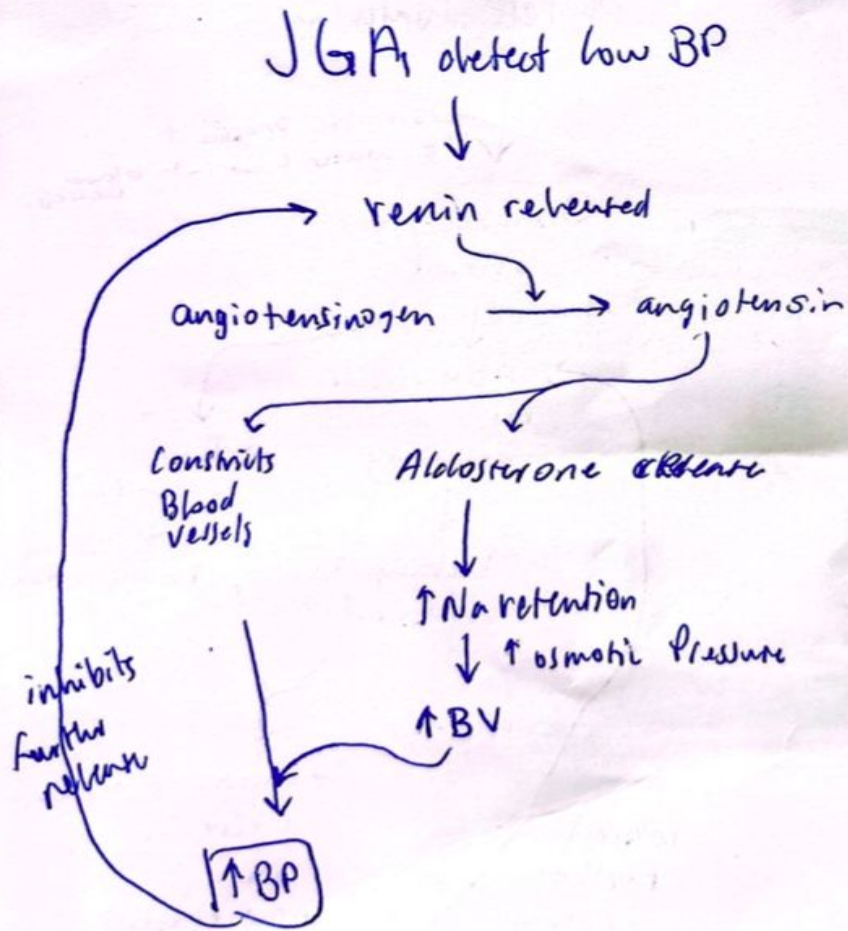 JGA, detect low BP
renin released
angiotensinogen → angiotensin
Constricts
Blood
vessels
Aldosterone release
↑ Na retention
↑ osmotic Pressure
↑ BV
inhibits
further
release
↑ BP